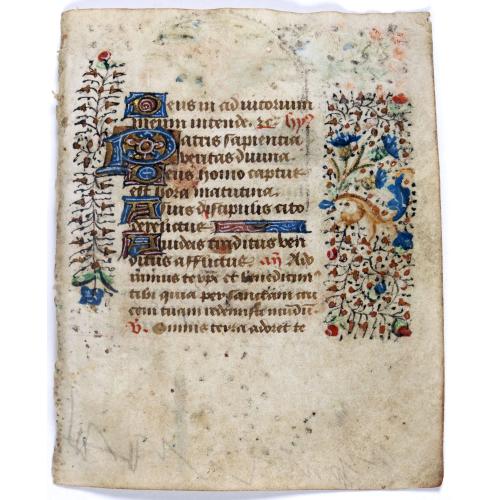 Deus in adiutorium
meum intende. Rc hys
Patris sapientia
veritas divina
Deus homo captus
est hora matutina
A suis discipulis cito
derelictus
A iudeis traditus ven
ditus afflictus añ Ado
ramus te xpe et benedicim
tibi quia per sanctam cru
cem tuam redemisti mūdū
V. Omnis terra adoret te